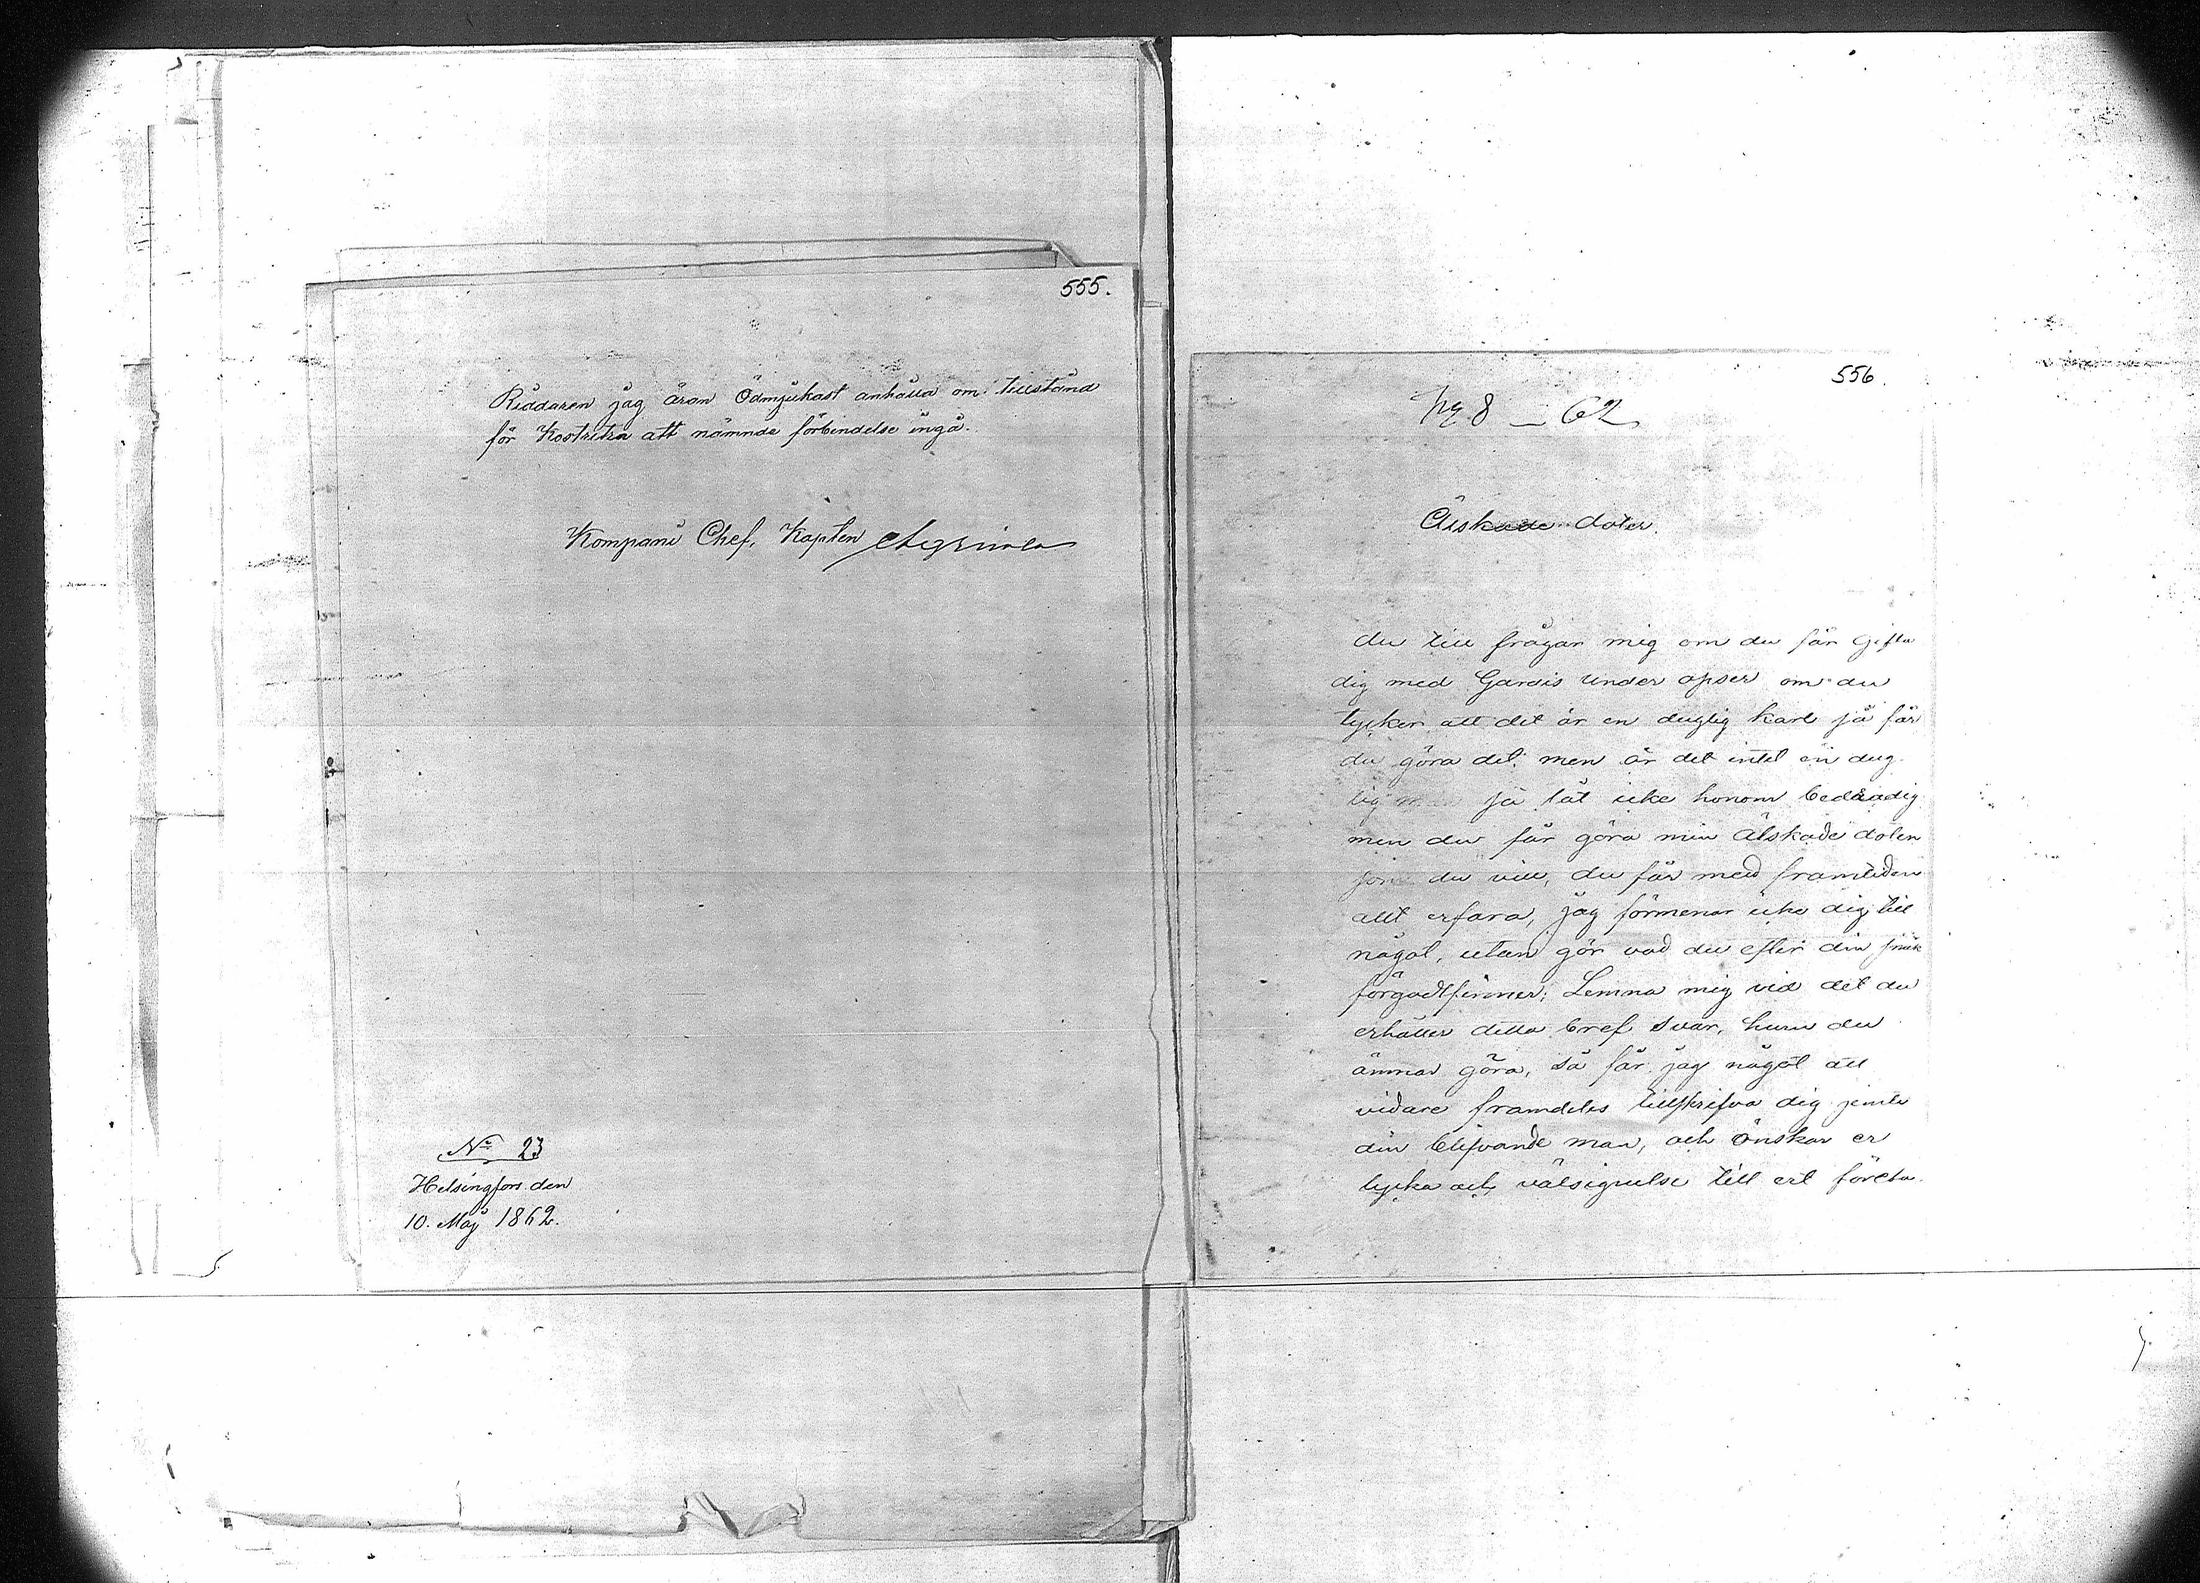 555.
Riddaren jag äran Ödmjukast anhålla om tillstånd
för Kostritzin att nämnde förbindelse ingå.
Kompani Chef, Kapten
No 23
Helsingfors den
10. Maj 1862.
556.
8 — 62
Älskade doter.
du till frågar mig om du får Gifta
dig med Gardis under opser om du
tycker att det är en duglig karl så får
du göra det, men är det intet en dug
lig så låt icke honom bedåradig
men du får göra min Älskade doter
som du vill, du får med framtiden
allt erfara, jag förmenar icke dig till
något, utan gör vad du efter din
förgodtfinner; Lemna mig vid det du
erhåller detta bref svar, huru du
ämnar göra, så får jag något att
vidare framdeles tillskrifva dig jemte
din blifvande man, och önskar er
lycka och välsignelse till ert företa